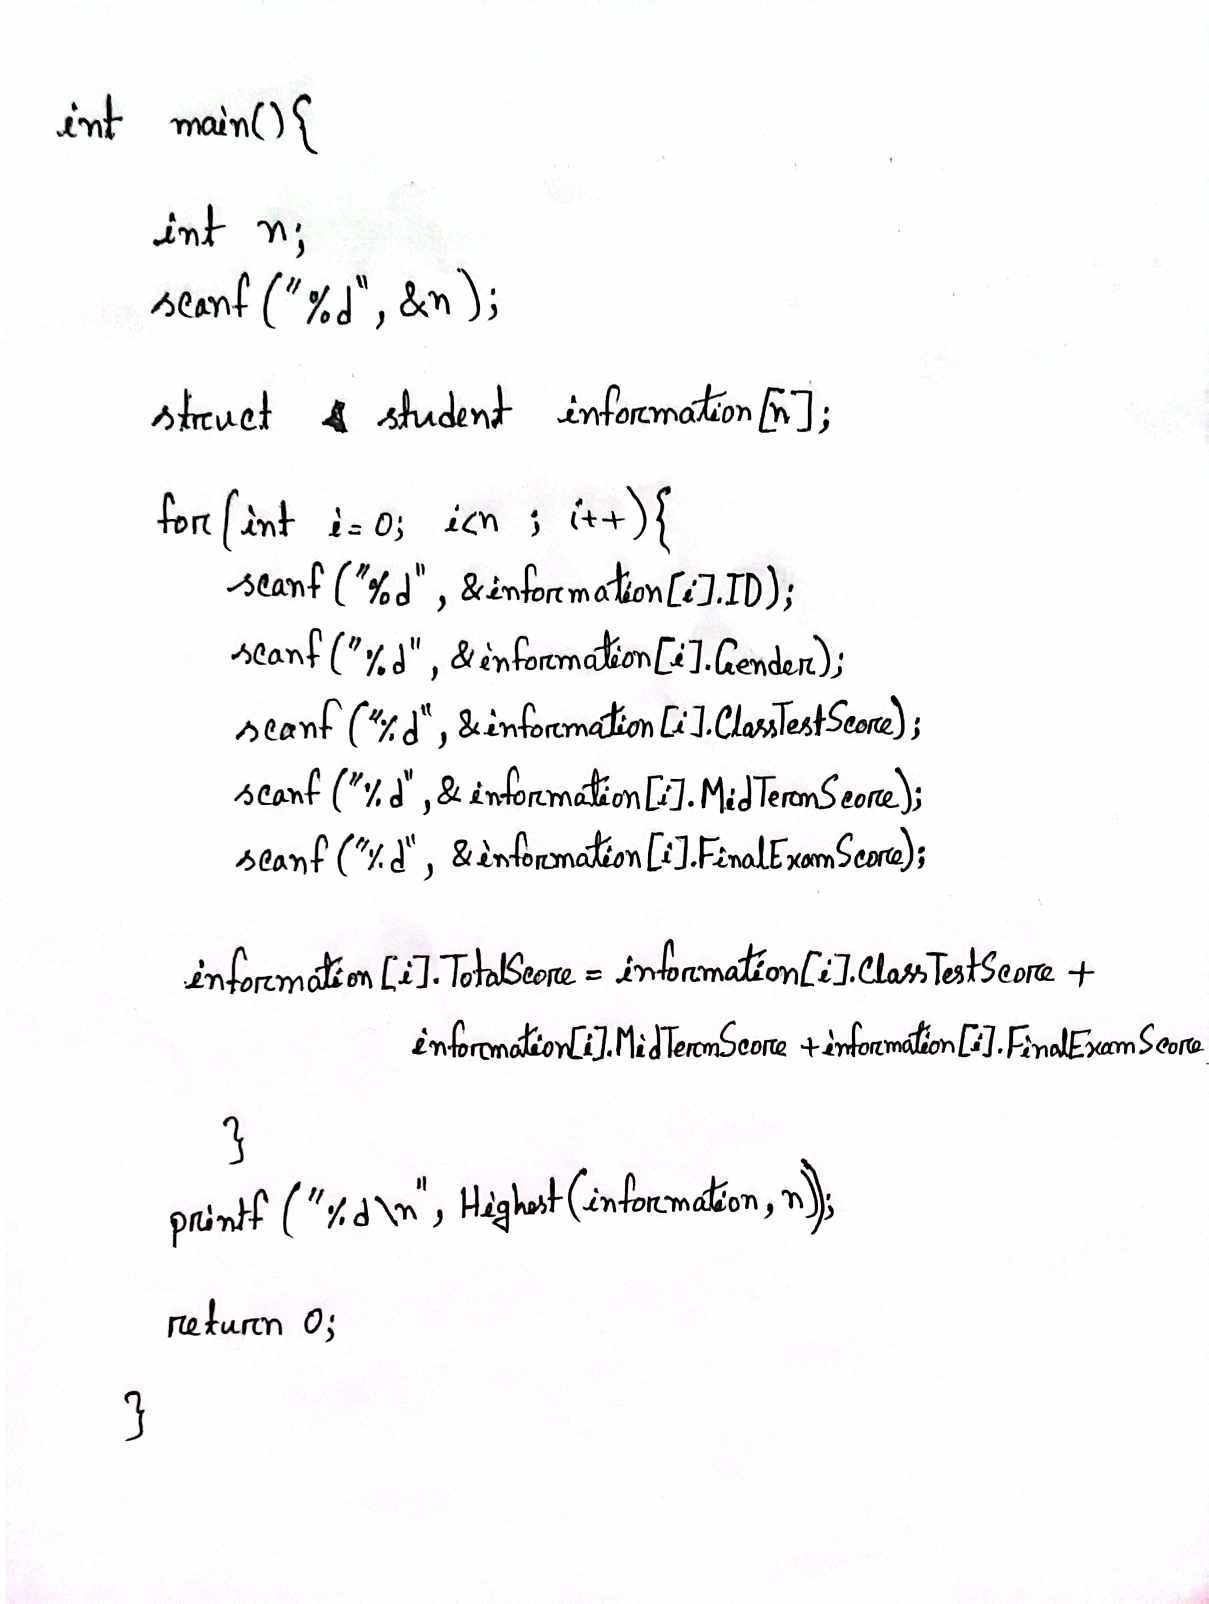 int main(){
int n;
scanf("%d", &n);
struct student information[n];
for(int i=0; i<n ; i++){
scanf("%d", &information[i].ID);
scanf("%d", &information[i].Gender);
scanf("%d", &information[i].ClassTestScore);
scanf("%d", &information[i].MidTermScore);
scanf("%d", &information[i].FinalExamScore);
information[i].TotalScore = information[i].ClassTestScore +
information[i].MidTermScore + information[i].FinalExamScore
}
printf("%d\n", Highest(information, n));
return 0;
}